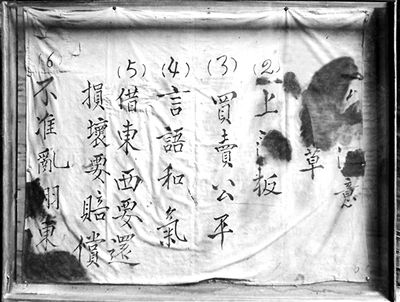 意
草
(2) 上板
(3) 買賣公平
(4) 言語和氣
(5) 借東西要還
損壞要賠償
(6) 不准亂東